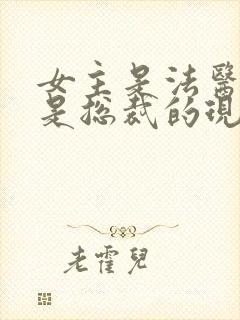 女主是法醫
是總裁的現
老霍兒